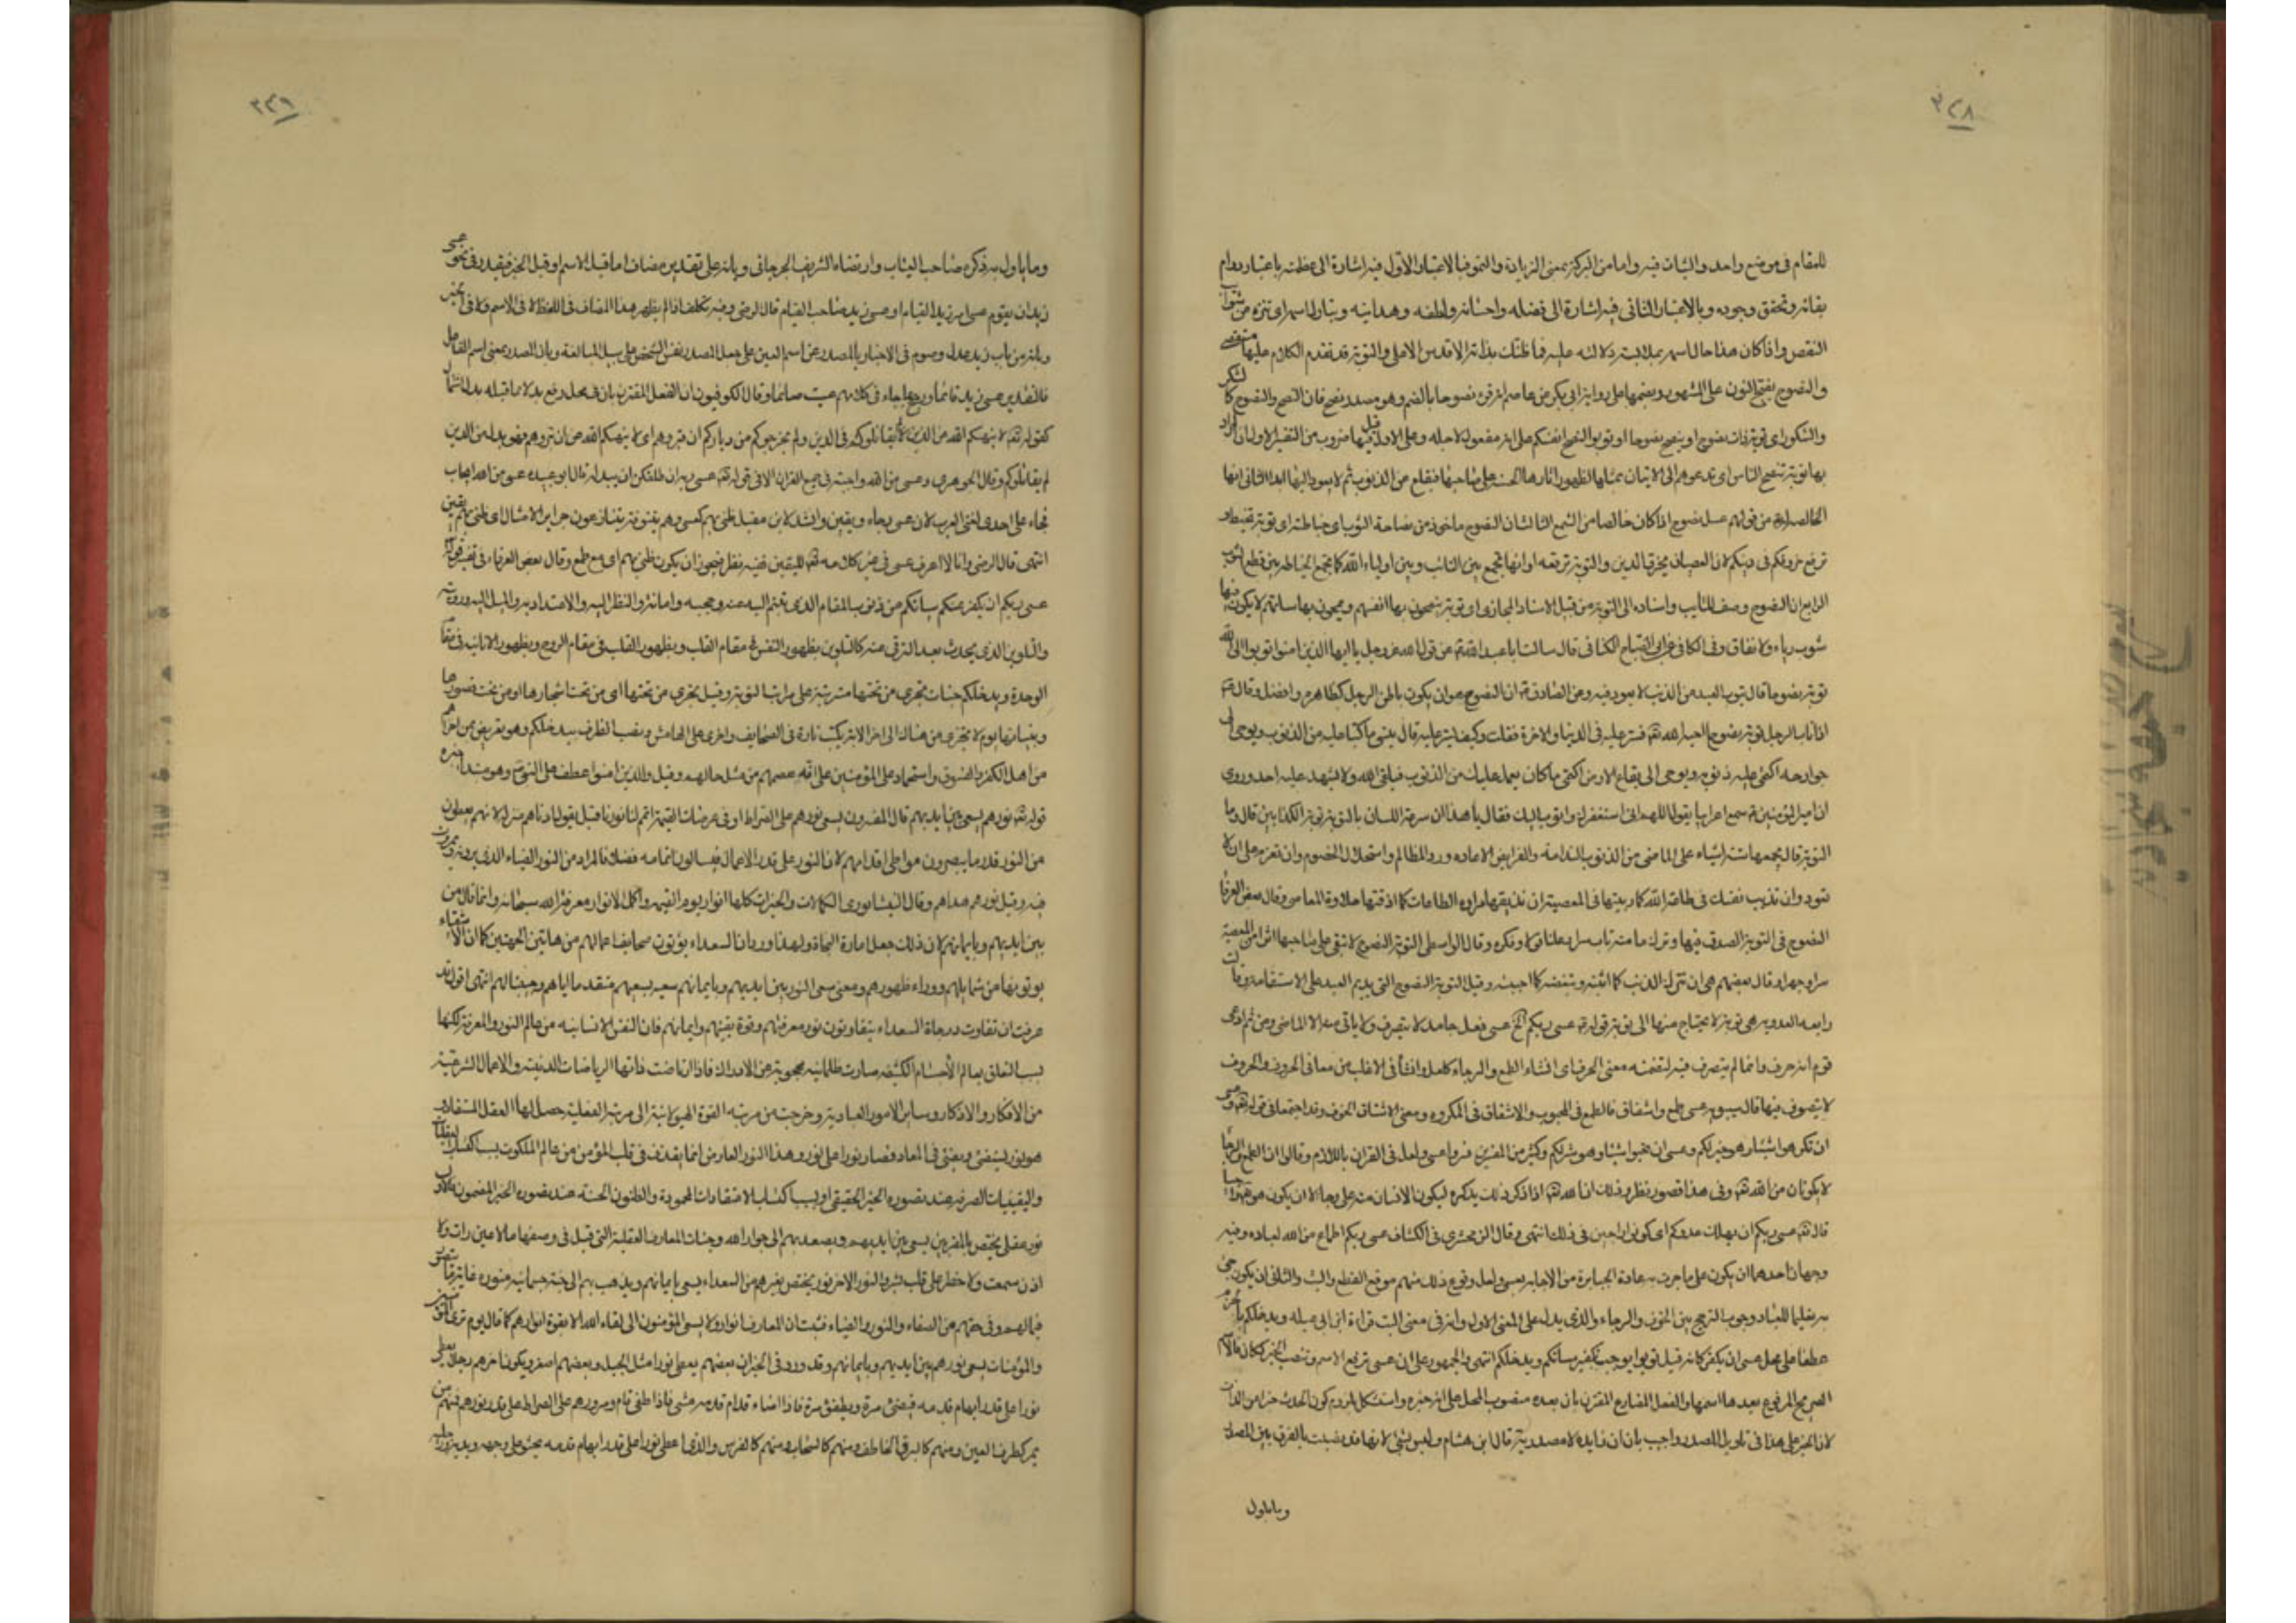 ٣٢٨
للمقام فى موضع واحد والثبات فيه واما من البركة بمعنى الزيادة والنمو فبالاعتبار الاول فيه اشارة الى عظمته باعتبار دوام
بقائه وتحقق وجوده وبالاعتبار الثانى فيه اشارة الى فضله واحسانه ولطفه وهدايته وتبارك اسمه اى تنزه من شوائب
النقص واذا كان هذا حال اسمه بملابسته دلالته عليه فما ظنك بذاته الاقدس الاعلى والتوبة قد تقدم الكلام عليها
والنصوح بفتح النون على المشهور وبضمها على رواية ابى بكر عن عاصم انه قرئ نصوحا بالضم وهو مصدر نصح فان النصح والنصوح كالشكر
والشكور اى توبة ذات نصوح او ينصح نصوحا او توبوا لنصح انفسكم على انه مفعول لاجله وعلى الاول قيل فيها ضروب من التفسير الاول ان المراد
بها توبة تنصح الناس اى تدعوهم الى الاتيان بمثلها لظهور اثارها الحسنة على صاحبها فيقلع عن الذنوب ثم لا يعود اليها ابدا الثانى انها
الخالصة من قولهم عسل نصوح اذا كان خالصا من الشمع الثالث ان النصوح ماخوذ من نصاحة الثوب اى خياطته اى توبة
ترقع خروقكم فى دينكم لان العصيان يخرق الدين والتوبة ترقعه او انها تجمع بين التائب وبين اولياء الله كما تجمع الخياطة بين قطع الثوب
الرابع ان النصوح وصف للتائب واسناده الى التوبة من قبيل الاسناد المجازى اى توبة ينصحون بها انفسهم ويمحون بها سيئاتهم لا يكون فيها
شوب رياء ولا نفاق وفى الكافى عن ابى الصباح الكنانى قال سالت ابا عبد الله عن قول الله عز وجل يا ايها الذين امنوا توبوا الى الله
توبة نصوحا قال يتوب العبد من الذنب لا يعود فيه وعن الصادق ان النصوح هو ان يكون باطن الرجل كظاهره وافضل وقال
اذا تاب الرجل توبة نصوحا احبه الله فستر عليه فى الدنيا والاخرة فقلت وكيف يستر عليه قال ينسى ما كتبا عليه من الذنوب ويوحى الى
جوارحه اكتمى عليه ذنوبه ويوحى الى بقاع الارض اكتمى ما كان يعمل عليك من الذنوب فيلقى الله ولا يشهد عليه احد وروى
ان امير المؤمنين سمع اعرابيا يقول اللهم انى استغفرك واتوب اليك فقال يا هذا ان سرعة اللسان بالتوبة توبة الكذابين قال وما
التوبة قال يجمعها ستة اشياء على الماضى من الذنوب الندامة والفرايض الاعادة ورد المظالم واستحلال الخصوم وان تعزم على ان لا
تعود وان تذيب نفسك فى طاعة الله كما ربيتها فى المعصية وان تذيقها مرارة الطاعات كما اذقتها حلاوة المعاصى وقال بعض العرفاء
النصوح فى التوبة الصدق فيها وترك ما منه تاب سرا وعلنا وقولا وفكره وقال الواسطى التوبة النصوح لا تبقى على صاحبها اثرا من المعصية
سرا وجهرا وقال بعضهم هى ان تترك الذنب كما اتيته وتبغضه كما احببته وقيل التوبة النصوح التى يديم العبد على الاستقامة وقالت
رابعة العدوية هى توبة لا يحتاج منها الى توبة قوله عسى ربكم الخ عسى فعل جامد لا يتصرف ولا ياتى منه الا الماضى ومن ثم ادعى
قوم انه حرف وانما لم يتصرف فيه لتضمنه معنى الحرف اى انشاء الطمع والرجاء كلعل والانشاء فى الاغلب من معانى الحروف والحروف
لا يتصرف فيها قال سيبويه عسى طمع واشفاق فالطمع فى المحبوب والاشفاق فى المكروه ومعنى الاشفاق الخوف وقد اجتمعا فى قوله وعسى
ان تكرهوا شيئا وهو خير لكم وعسى ان تحبوا شيئا وهو شر لكم وكثير من المفسرين فسروا عسى ولعل فى القران باللازم وقالوا ان الطمع والرجاء
لا يكونان من الله وفى هذا قصور نظر وذلك ان الله اذا ذكر ذلك يذكره ليكون الانسان منه على رجاء لا ان يكون هو راجيا
قال عسى ربكم ان يهلك عدوكم اى كونوا راجين فى ذلك انتهى وقال الزمخشرى فى الكشاف عسى ربكم اطماع من الله لعباده وفيه
وجهان احدهما ان يكون على ما جرت به عادة الجبابرة من الاجابة بعسى ولعل ووقوع ذلك منهم موقع القطع والبت والثانى ان يكون جئ
به تعليما للعباد وجوب الترجح بين الخوف والرجاء والذى يدل على المعنى الاول وانه فى معنى البت قراءة ابن ابى عبلة ويدخلكم بالجزم
عطفا على محل عسى ان يكفر كانه قيل توبوا يوجب تكفير سيئاتكم ويدخلكم انتهى والجمهور على ان عسى ترفع الاسم وتنصب الخبر ككان فالاسم
الصريح المرفوع بعدها اسمها والفعل المضارع المقترن بان بعده منصوب المحل على انه خبره واستشكل لزوم كون الحدث خبرا من الذات
لان الخبر على هذا فى تاويل المصدر واجيب بان ان زايدة لا مصدرية قال ابن هشام وليس بشئ لانها قد نصبت بالفرق بين المصدر
وما ياول
٣٢٩
وما ياول به ذكره صاحب اللباب وارتضاه الشريف الجرجانى وبانه على تقدير مضاف اما قبل الاسم او قبل الخبر فيقدر فى نحو عسى
زيد ان يقوم عسى امر زيد القيام او عسى زيد صاحب القيام قال الرضى وفيه تكلف اذ لم يظهر هذا المضاف فى اللفظ لا فى الاسم ولا فى الخبر
وبانه من باب زيد عدل وصوم فى الاخبار بالمصدر عن اسم العين على جعل المصدر نفس الشخص على سبيل المبالغة وبان المصدر بمعنى اسم الفاعل
فالتقدير عسى زيد قائما ورجح بما جاء فى كلامهم عسيت صائما وقال الكوفيون ان الفعل المقترن بان فى محل رفع بدلا مما قبله بدل اشتمال
كقوله لا ينهيكم الله عن الذين لم يقاتلوكم فى الدين ولم يخرجوكم من دياركم ان تبروهم اى لا ينهيكم الله عن ان تبروهم فهو بدل من الذين
لم يقاتلوكم وقال الجوهرى وعسى من الله واجبة فى جميع القران الا فى قوله عسى ربه ان طلقكن ان يبدله قال ابو عبيدة عسى من الله ايجاب
فجاء على احدى لغتى العرب لان عسى رجاء ويقين وانشد لابن مقبل ظنى بهم كعسى وهم بتنوفة يتنازعون جوايز الامثال اى ظنى بهم يقين
انتهى قال الرضى وانا لا اعرف عسى فى غير كلامه للتيقين ففيه نظر فيجوز ان يكون ظنى بهم اى مع طمع وقال بعض العرفاء فى تفسير قوله
عسى ربكم ان يكفر عنكم سيئاتكم من ذنوب المقام الذى تبتم اليه عنه وحجبه وامانه والنظر اليه والاعتداد به والميل اليه ورؤيته
والتلوين الذى يحدث بعد الترقى عنه كالتلوين بظهور النفس فى مقام القلب وبظهور القلب فى مقام الروح وبظهور الانائية فى مقام
الوحدة ويدخلكم جنات تجرى من تحتها مترتبة على مراتب التوبة وقيل تجرى من تحتها اى من تحت اشجارها او من تحت قصورها
من اهل الكفر والفسوق واستحماد على المؤمنين على انه عصمهم من مثل حالهم وقيل والذين امنوا عطف على النبى وهو مبتدا خبره
قوله نورهم يسعى بين ايديهم قال المفسرون يسعى نورهم على الصراط او فى عرصات القيمة اتمم لنا نورنا قيل يقول ادناهم منزلة لانهم يعطون
من النور قدر ما يبصرون مواطى اقدامهم لان النور على قدر الاعمال فيسالون اتمامه فضلا فالمراد من النور الضياء الذى يرونه ويمرون
فيه وقيل نورهم هداهم وقال النيشابورى الكمالات والخيرات كلها انوار يوم القيمة واكمل الانوار معرفة الله سبحانه وانما قال من
بين ايديهم وبايمانهم لان ذلك جعل امارة النجاة ولهذا ورد ان السعداء يؤتون صحايف اعمالهم من هاتين الجهتين كما ان الاشقياء
يوتونها من شمايلهم ووراء ظهورهم ومعنى سعى النور بين ايديهم وبايمانهم سعيه بسعيهم متقدما اياهم وجنيبا لهم انتهى اقول قد
عرفت ان تفاوت درجات السعداء بتفاوت نور معرفتهم وقوة يقينهم وايمانهم فان النفس الانسانية من عالم النور والمعرفة لكنها
بسبب التعلق بعالم الاجسام الكثيفة صارت ظلمانية محجوبة عن الادراك فاذا ارتاضت ذاتها الرياضات الدينية والاعمال الشرعية
من الافكار والاذكار وساير الامور العبادية وخرجت من مرتبة القوة الهيولانية الى مرتبة العقلية حصل لها العقل المستفاد
هو نور يستضئ ويمشى فى المعاد فصار نورا على نور وهذا النور العارض انما يقذف فى قلب المؤمن من عالم الملكوت بسبب اكتساب
واليقينيات الصرفة عند تصوره الخير الحقيقى او بسبب اكتساب الاعتقادات المحمودة والظنون الحسنة عند تصوره الخير المضمون فالاول
نور عقلى يختص بالمقربين يسعى بين ايديهم ويصعد بهم الى جوار الله وجنات المعارف العقلية التى قيل فى وصفها ما لا عين رات ولا
اذن سمعت ولا خطر على قلب بشر والنور الاخر نور يختص بغيرهم من السعداء يسعى بايمانهم ويذهب بهم الى جنة جسمانية منورة
فيها لهم وفى حقهم من الصفاء والنور والضياء فثبت ان المعارف انوار ولا يسعى المؤمنون الى لقاء الله الا بقوة انوارهم كما قال يوم ترى المؤمنين
والمؤمنات يسعى نورهم بين ايديهم وبايمانهم وقد ورد فى الخبر ان بعضهم يعطى نورا مثل الجبل وبعضهم اصغر ويكون اخرهم رجلا يعطى
نورا على قدر ابهام قدمه فيضئ مرة ويطفئ مرة فاذا اضاء قدام قدمه مشى فاذا طفى قام ومرورهم على الصراط على قدر نورهم فمنهم من
يمر كطرف العين ومنهم كالبرق الخاطف ومنهم كالسحاب ومنهم كالفرس والذى اعطى نورا على قدر ابهام قدمه يحبو على وجهه ويديه ورجليه